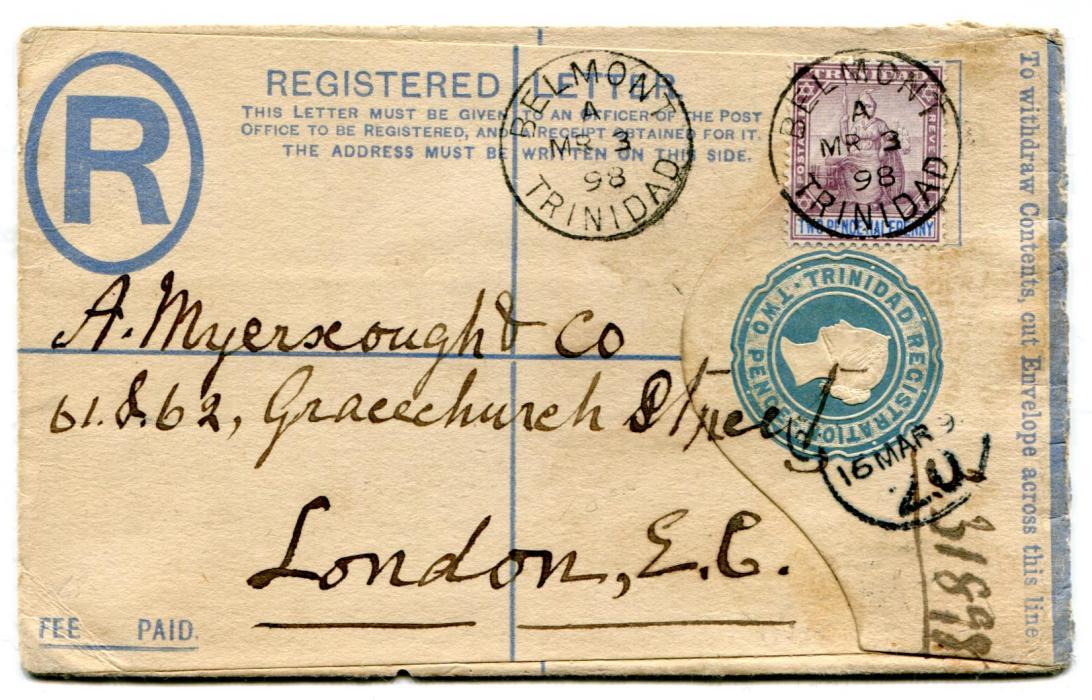 R
REGISTERED LETTER.
THIS LETTER MUST BE GIVEN TO AN OFFICER OF THE POST
OFFICE TO BE REGISTERED, AND A RECEIPT OBTAINED FOR IT.
THE ADDRESS MUST BE WRITTEN ON THIS SIDE.
BELMONT
A
MR 3
98
TRINIDAD
TRINIDAD
POSTAGE
REVENUE
TWO PENCE HALFPENNY
BELMONT
A
MR 3
98
TRINIDAD
TRINIDAD REGISTRATION
TWO PENCE
A. Myerscough & Co
61. & 62, Gracechurch Street
London, E.C.
16 MAR 9
31898
FEE PAID.
To withdraw Contents, cut Envelope across this line